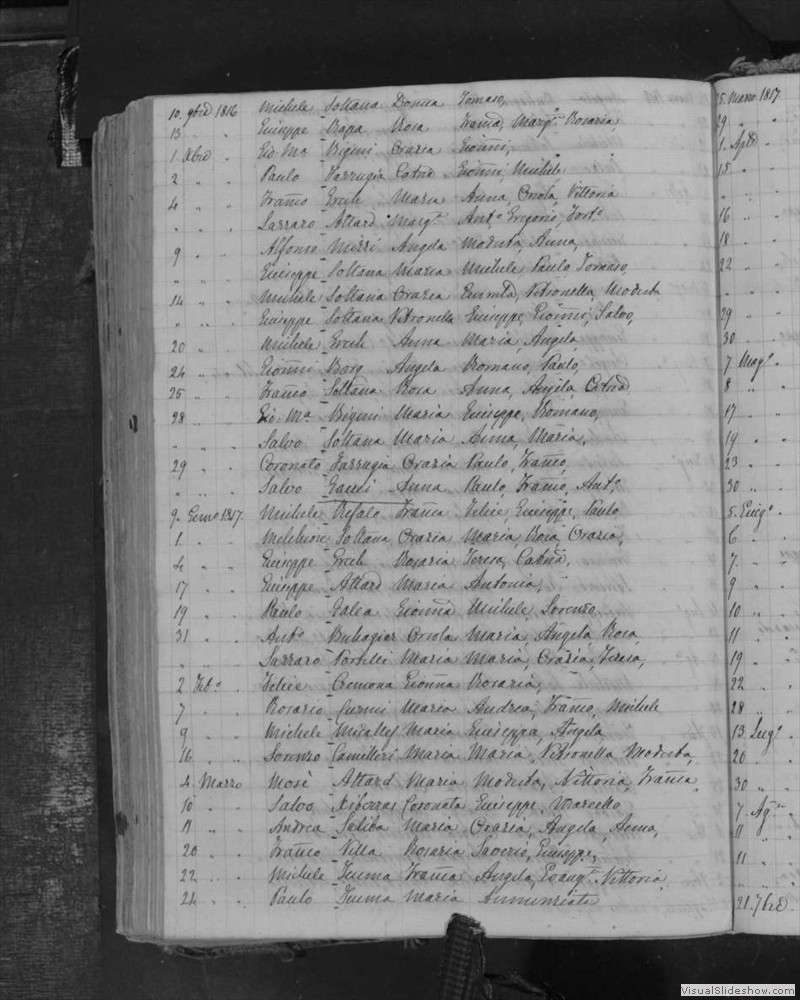 10. 9bre 1816 Michele Soltana Donna Tomaso,
13 " " Giuseppe Rapa Rosa Franca, Marga. Rosaria
1 Xbre " Gio: Ma. Bigini Grazia Gionni,
2 " " Paulo Farrugia Catna Gionni, Michele
4 " " Franco Ercih Maria Anna, Oriola, Vittoria
" " " Lazzaro Attard Marga. Anto. Gregorio, Forto.
9 " " Alfonso Mizzi Angela Modesta, Anna,
" " " Giuseppe Soltana Maria Michele Paulo, Tomaso,
14 " " Michele Soltana Grazia Petronella, Modesta
" " " Giuseppe Soltana Petronella Giuseppe, Gionni, Salvo,
20 " " Michele Ercih Anna Maria, Angela
24 " " Gionni Borg Angela Romano, Paulo,
25 " " Franco Soltana Rosa Anna, Angela Catna
28 " " Gio: Ma. Bigini Maria Giuseppe, Romano,
" " " Salvo Soltana Maria Anna, Maria,
29 " " Coronato Farrugia Grazia Paulo, Franco,
" " " Salvo Gauci Anna Paulo, Franco, Anto.
9. Genro. 1817. Michele Refalo Franca Felice, Giuseppe, Paulo
1. " " Melchiore Soltana Grazia Maria, Rosa, Grazia,
4 " " Giuseppe Ercih Rosaria Teresa, Catna,
17 " " Giuseppe Attard Maria Antonia,
19 " " Paulo Galea Gionna Michele, Lorenzo,
31 " " Anto. Buhagiar Oriola Maria, Angela, Rosa,
" " " Lazzaro Portelli Maria Maria, Grazia, Teresa,
2 Febo. " Felice Cremona Gionna Rosaria,
7 " " Rosario Gurmi Maria Andrea, Franco, Michele
9 " " Michele Micallef Maria Giuseppa, Angela
16 " " Lorenzo Camilleri Maria Maria, Petronella Modesta,
4 Marzo Mosè Attard Maria Modesta, Vittoria, Franca,
10 " " Salvo Xiberras Coronata Giuseppe, Marcello
11 " " Andrea Saliba Maria Grazia, Angela, Anna,
20 " " Franco Villa Rosaria Saverio, Giuseppe,
22 " " Michele Zumma Franca Angela, Evangta. Vittoria
24 " " Paulo Zumma Maria Annunziata
5. Marzo 1817
29 "
1. Aple
15 "
" "
16 "
18 "
22 "
" "
29 "
30 "
7 Maggo.
8 "
17 "
19 "
23 "
30 "
5. Giugo.
6 "
7 "
9 "
10 "
11 "
19 "
22 "
28 "
13. Lugo.
20 "
30 "
7. Ago.
11 "
11 "
" "
21. 7bre
VisualSlideshow.com